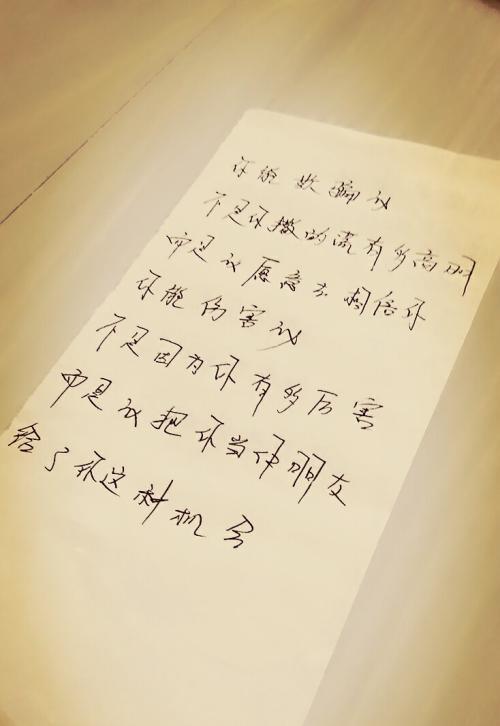 你能欺骗我
不是你撒的谎有多高明
而是我愿意去相信你
你能伤害我
不是因为你有多厉害
而是我把你当作朋友
给了你这种机会